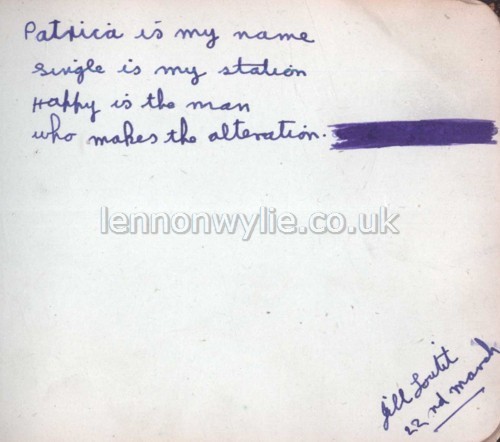 Patricia is my name
single is my station
Happy is the man
who makes the alteration.
lennonwylie.co.uk
Jill
22nd march